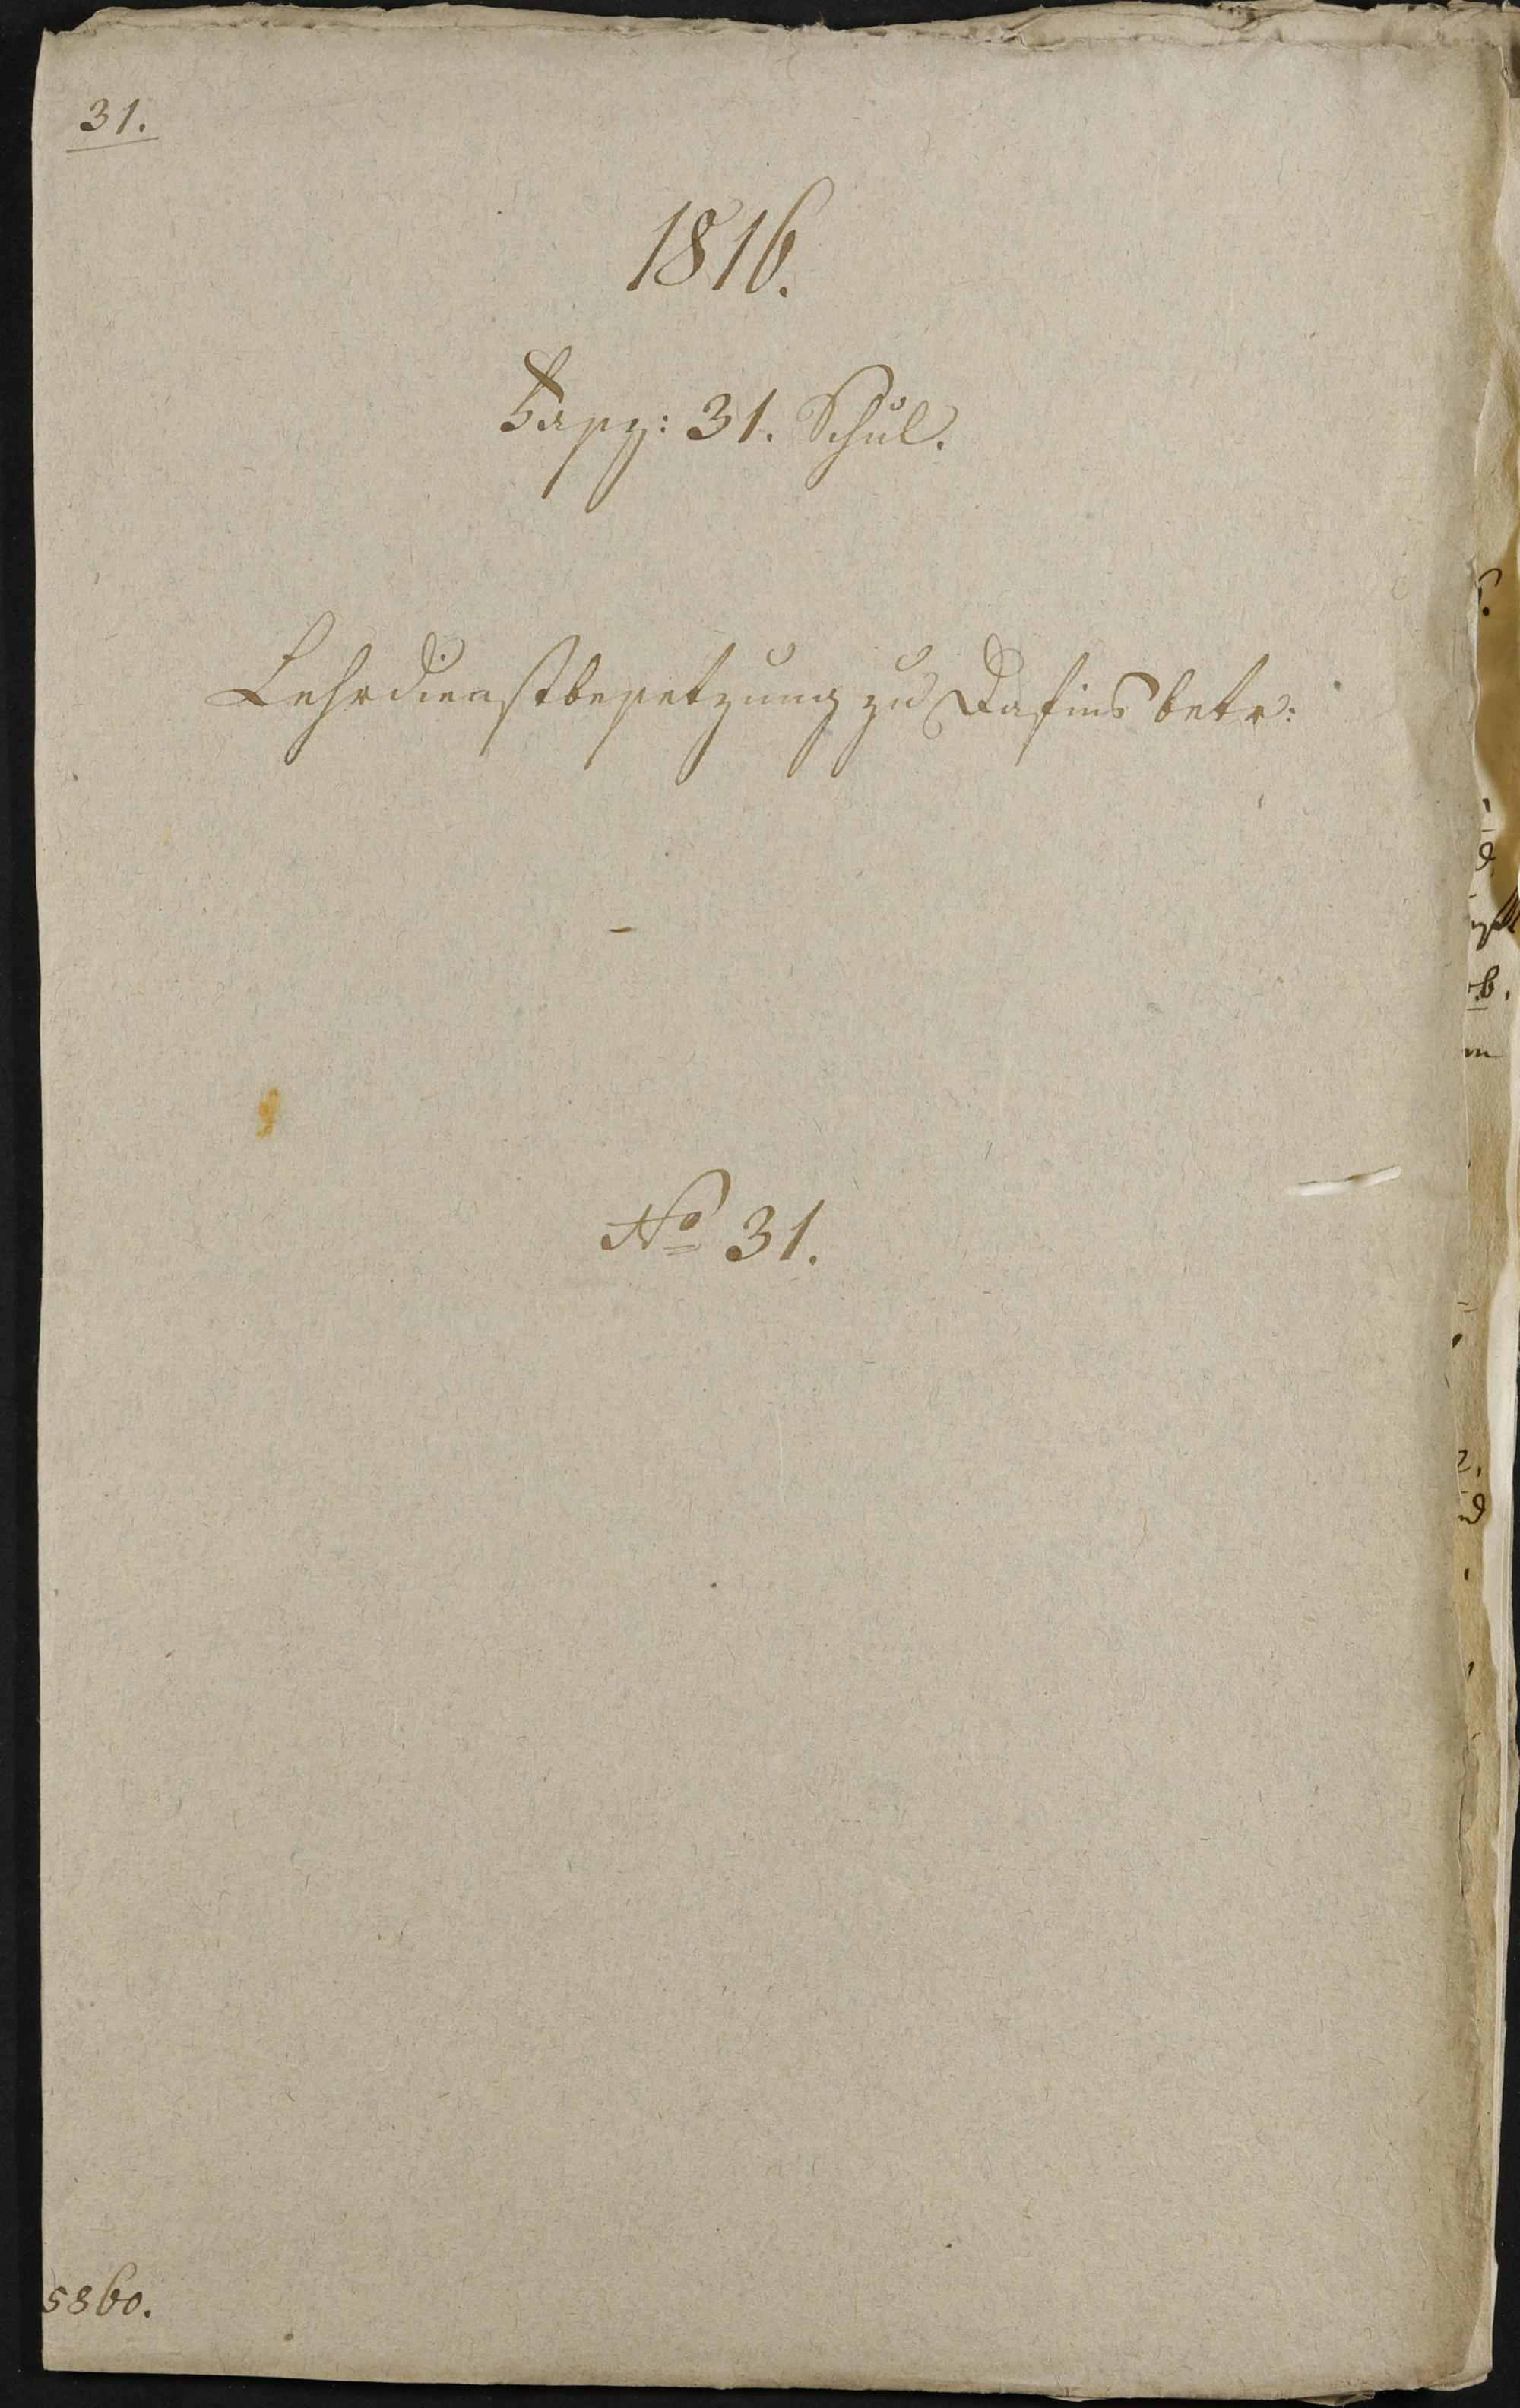 31.
1816.
Fasz: 31. Schul.
Lehrdienstbesetzung zu Tafins betr:
No 31.
5860.